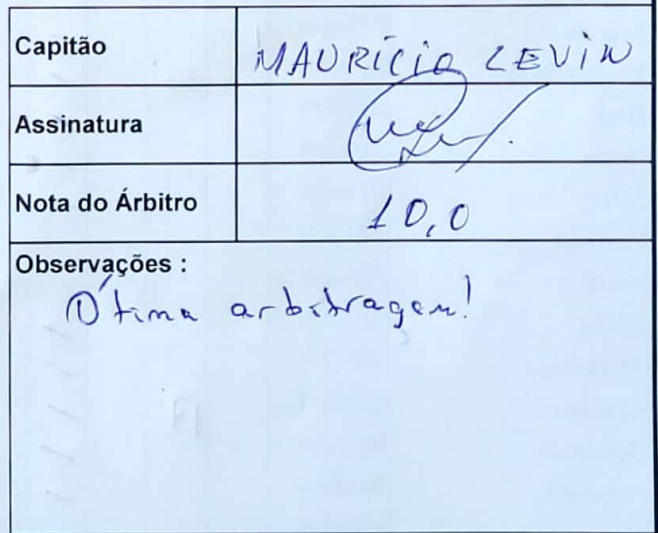 Capitão MAURÍCIO LEVIN
Assinatura
Nota do Árbitro 10,0
Observações :
Ótima arbitragem!